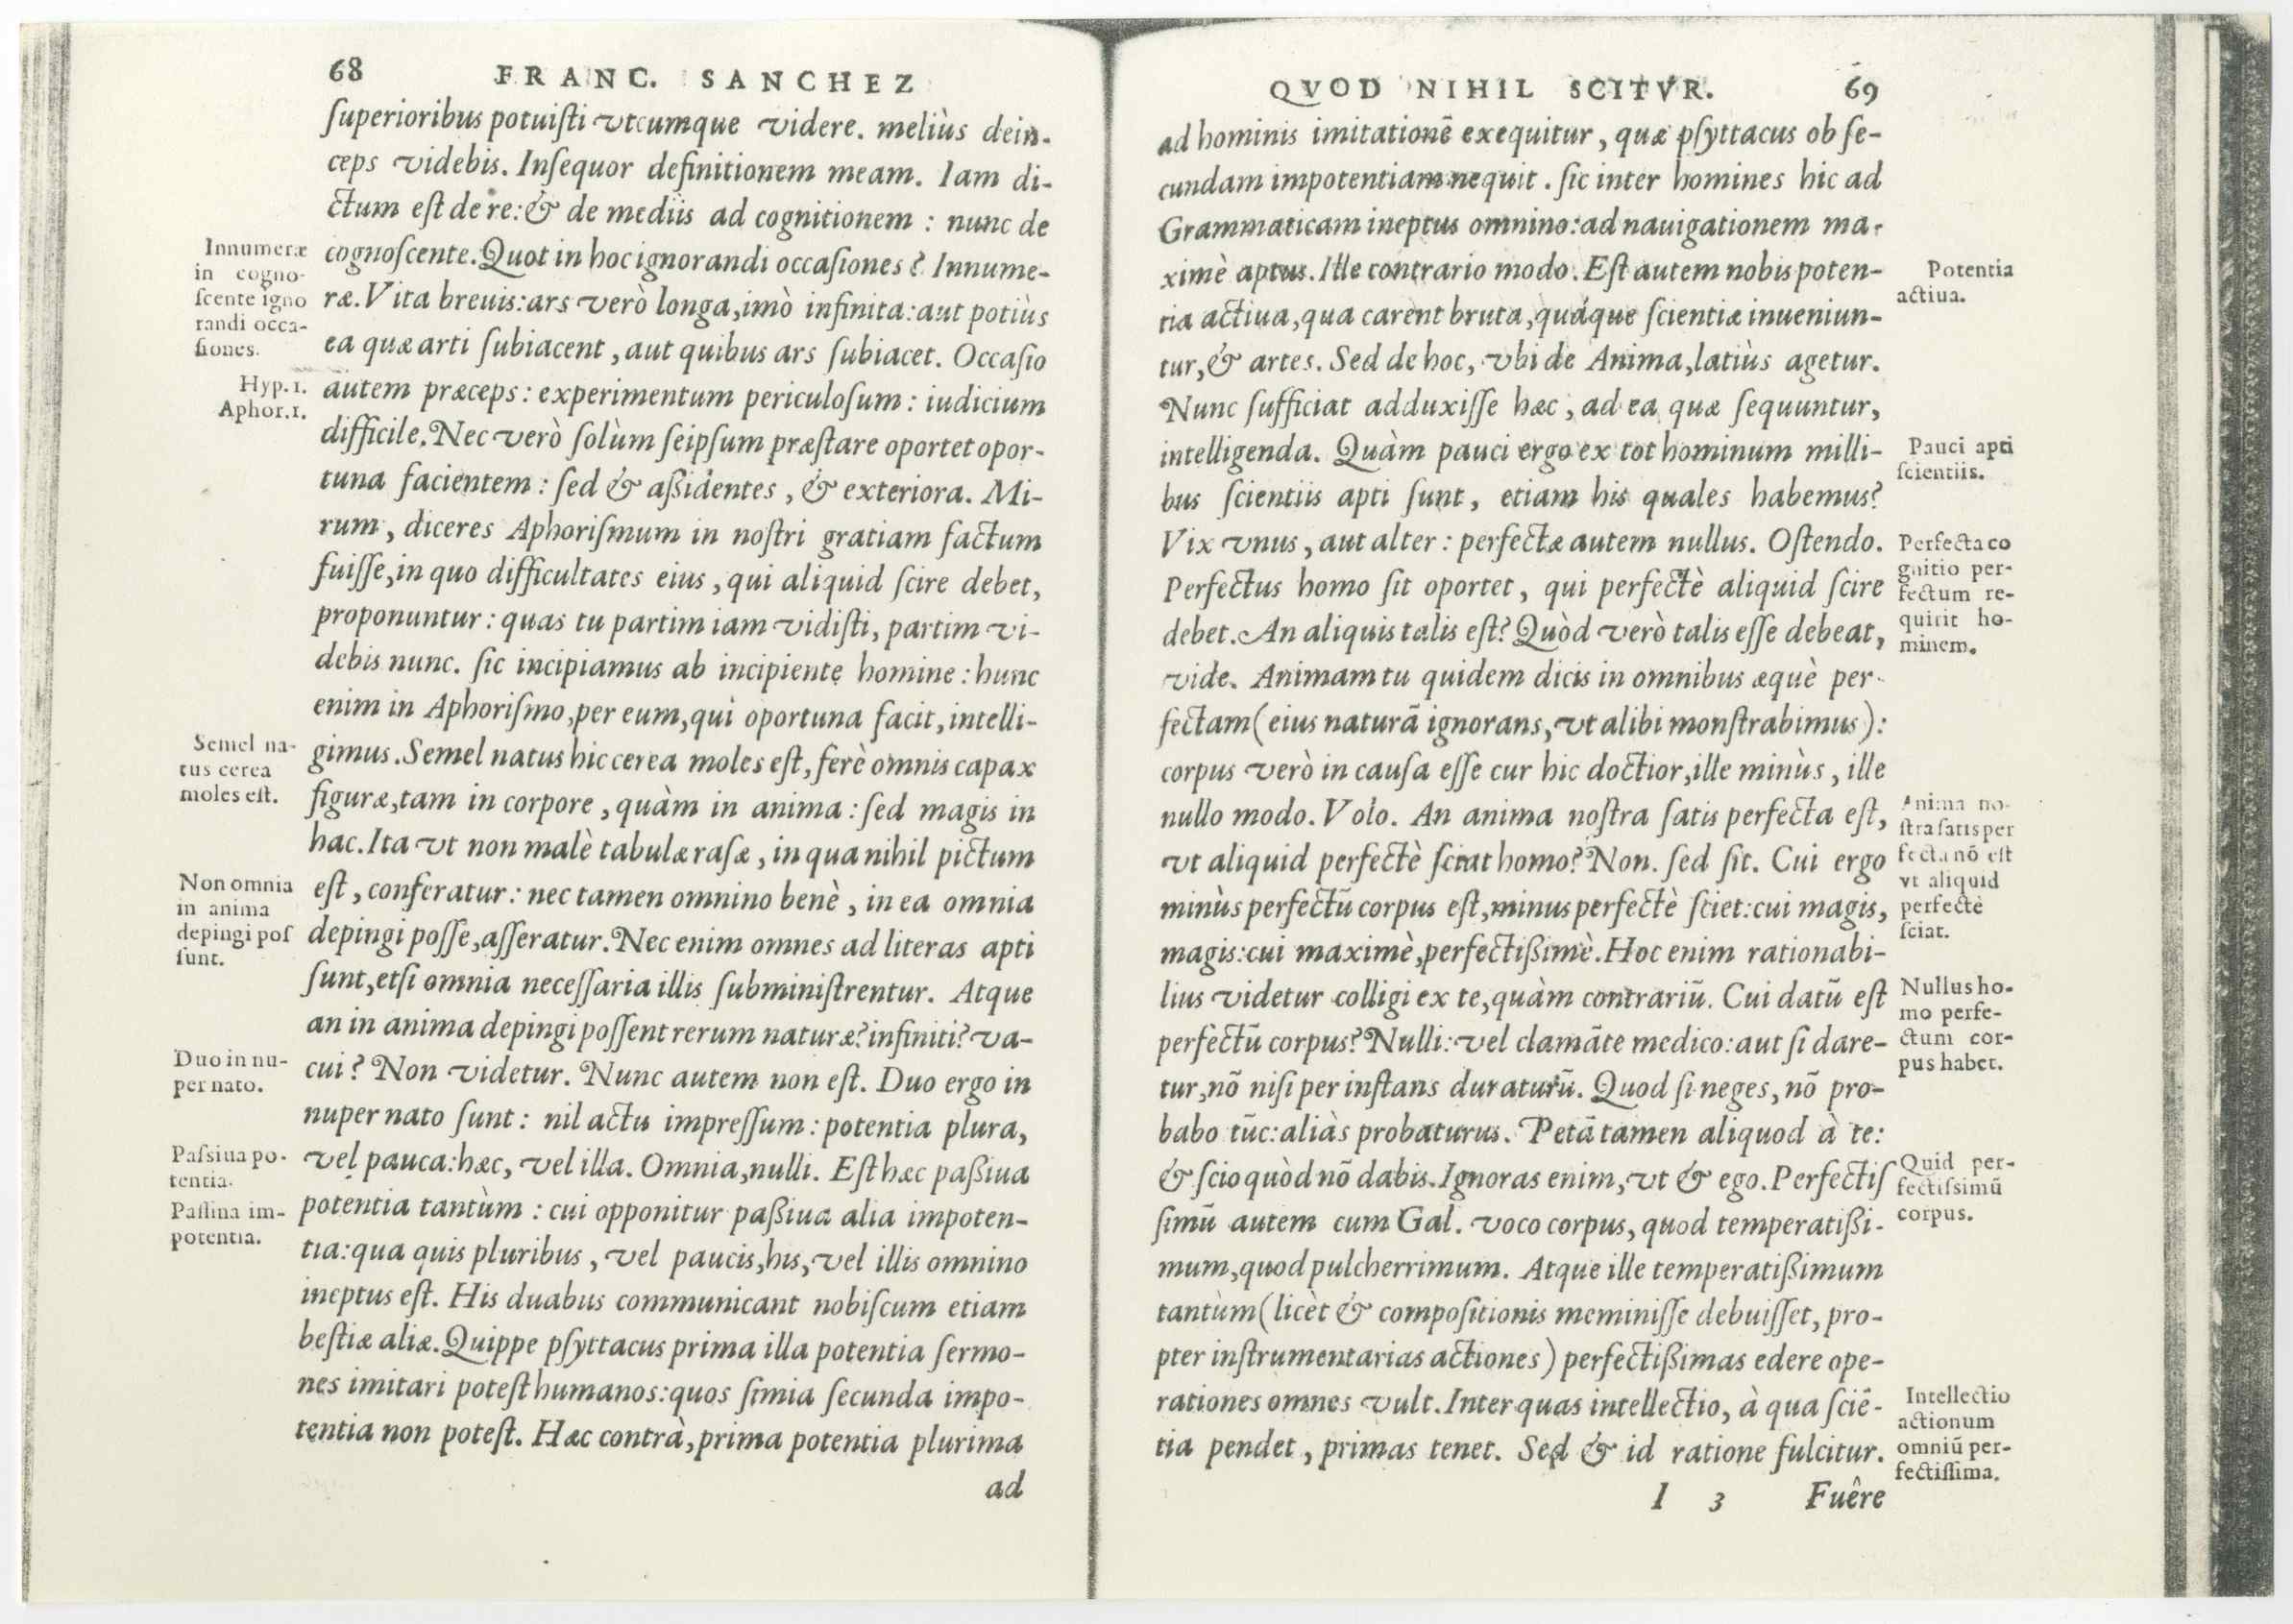 68 FRANC. SANCHEZ
ſuperioribus potuiſti vtcumque videre. meliùs dein-
ceps videbis. Inſequor definitionem meam. Iam di-
ctum eſt de re: & de mediis ad cognitionem : nunc de
Innumeræ
in cogno-
ſcente igno
randi occa-
ſiones.
cognoſcente. Quot in hoc ignorandi occaſiones? Innume-
ræ. Vita breuis: ars verò longa, imò infinita: aut potiùs
ea quæ arti ſubiacent, aut quibus ars ſubiacet. Occaſio
Hyp. 1.
Aphor. 1.
autem præceps: experimentum periculoſum: iudicium
difficile. Nec verò ſolùm ſeipſum præſtare oportet opor-
tuna facientem: ſed & aßidentes, & exteriora. Mi-
rum, diceres Aphoriſmum in noſtri gratiam factum
fuiſſe, in quo difficultates eius, qui aliquid ſcire debet,
proponuntur: quas tu partim iam vidiſti, partim vi-
debis nunc. ſic incipiamus ab incipiente homine: hunc
enim in Aphoriſmo, per eum, qui oportuna facit, intelli-
Semel na-
tus cerea
moles eſt.
gimus. Semel natus hic cerea moles eſt, ferè omnis capax
figuræ, tam in corpore, quàm in anima: ſed magis in
hac. Ita vt non malè tabulæ raſæ, in qua nihil pictum
Non omnia
in anima
depingi poſ
ſunt.
eſt, conferatur: nec tamen omnino benè, in ea omnia
depingi poſſe, aſſeratur. Nec enim omnes ad literas apti
ſunt, etſi omnia neceſſaria illis ſubminiſtrentur. Atque
an in anima depingi poſſent rerum naturæ? infiniti? va-
Duo in nu-
per nato.
cui? Non videtur. Nunc autem non eſt. Duo ergo in
nuper nato ſunt: nil actu impreſſum: potentia plura,
Paſsiua po-
tentia.
vel pauca: hæc, vel illa. Omnia, nulli. Eſt hæc paßiua
Paſſiua im-
potentia.
potentia tantùm: cui opponitur paßiua alia impoten-
tia: qua quis pluribus, vel paucis, his, vel illis omnino
ineptus eſt. His duabus communicant nobiſcum etiam
beſtiæ aliæ. Quippe pſyttacus prima illa potentia ſermo-
nes imitari poteſt humanos: quos ſimia ſecunda impo-
tentia non poteſt. Hæc contrà, prima potentia plurima
ad
QVOD NIHIL SCITVR. 69
ad hominis imitationē exequitur, quæ pſyttacus ob ſe-
cundam impotentiam nequit. ſic inter homines hic ad
Grammaticam ineptus omnino: ad nauigationem ma-
ximè aptus. Ille contrario modo. Eſt autem nobis poten-
Potentia
actiua.
tia actiua, qua carent bruta, quáque ſcientiæ inueniun-
tur, & artes. Sed de hoc, vbi de Anima, latiùs agetur.
Nunc ſufficiat adduxiſſe hæc, ad ea quæ ſequuntur,
intelligenda. Quàm pauci ergo ex tot hominum milli-
Pauci apti
ſcientiis.
bus ſcientiis apti ſunt, etiam his quales habemus?
Vix vnus, aut alter: perfectæ autem nullus. Oſtendo.
Perfecta co
gnitio per-
fectum re-
quirit ho-
minem.
Perfectus homo ſit oportet, qui perfectè aliquid ſcire
debet. An aliquis talis eſt? Quòd verò talis eſſe debeat,
vide. Animam tu quidem dicis in omnibus æquè per-
fectam (eius naturā ignorans, vt alibi monſtrabimus):
corpus verò in cauſa eſſe cur hic doctior, ille minùs, ille
nullo modo. Volo. An anima noſtra ſatis perfecta eſt,
Anima no-
ſtra ſatis per
fecta nō eſt
vt aliquid
perfectè
ſciat.
vt aliquid perfectè ſciat homo? Non. ſed ſit. Cui ergo
minùs perfectū corpus eſt, minus perfectè ſciet: cui magis,
magis: cui maximè, perfectißimè. Hoc enim rationabi-
lius videtur colligi ex te, quàm contrariū. Cui datū eſt
Nullus ho-
mo perfe-
ctum cor-
pus habet.
perfectū corpus? Nulli: vel clamāte medico: aut ſi dare-
tur, nō niſi per inſtans duraturū. Quod ſi neges, nō pro-
babo tūc: aliàs probaturus. Petā tamen aliquod à te:
& ſcio quòd nō dabis. Ignoras enim, vt & ego. Perfectiſ
Quid per-
fectiſsimū
corpus.
ſimū autem cum Gal. voco corpus, quod temperatißi-
mum, quod pulcherrimum. Atque ille temperatißimum
tantùm (licèt & compoſitionis meminiſſe debuiſſet, pro-
pter inſtrumentarias actiones) perfectißimas edere ope-
rationes omnes vult. Inter quas intellectio, à qua ſciē-
Intellectio
actionum
omniū per-
fectiſſima.
tia pendet, primas tenet. Sed & id ratione fulcitur.
I 3 Fuêre